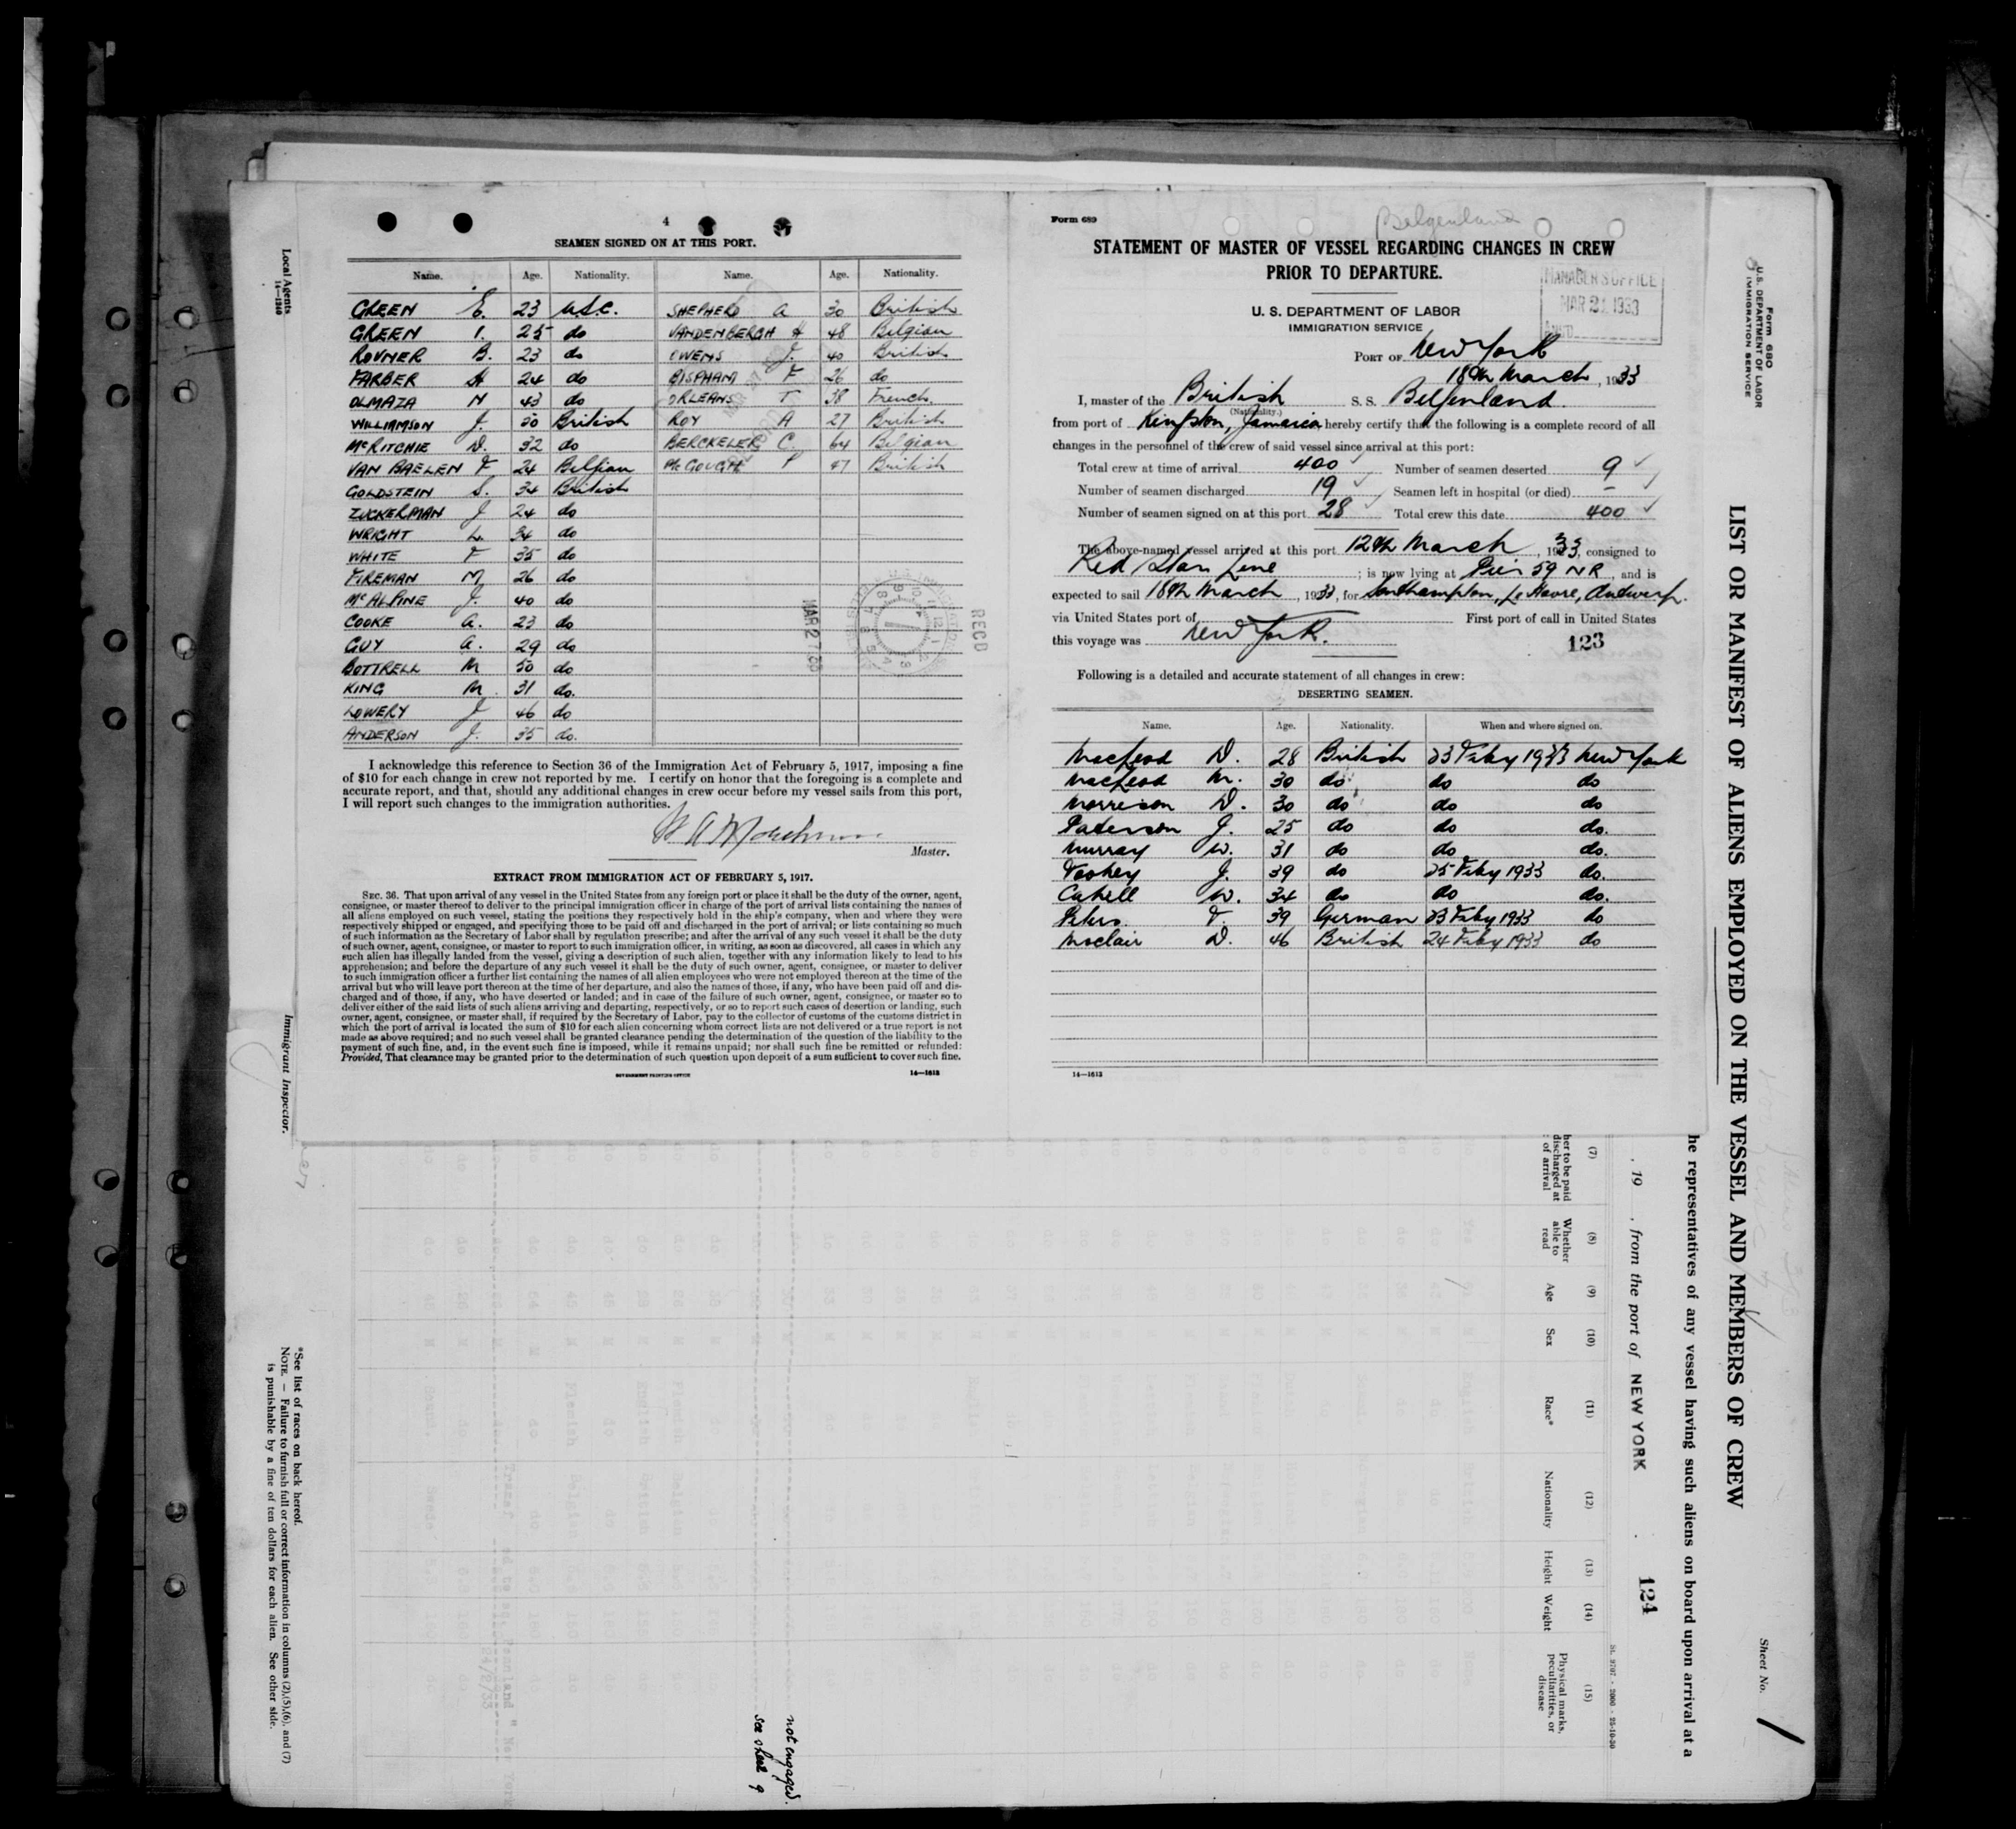 4
SEAMEN SIGNED ON AT THIS PORT.
Name. Age. Nationality. Name. Age. Nationality.
GREEN E. 23 U.S.C. SHEPHERD A 30 British
GREEN I. 25 do VANDENBERGH H 48 Belgian
ROVNER B. 23 do OWENS J. 40 British
FARBER H 24 do BISPHAM F 26 do
OLMAZA N 43 do ORLEANS T 38 French
WILLIAMSON J. 30 British ROY A 27 British
McRITCHIE D. 32 do BERCKELER C. 64 Belgian
VAN BAELEN F 24 Belgian McGOUGH P 47 British
GOLDSTEIN S. 34 British
ZUCKERMAN J 24 do
WRIGHT L. 34 do
WHITE F 35 do
FIREMAN M 26 do
McALPINE J. 40 do
COOKE A. 23 do
GUY A. 29 do
BOTTRELL M 50 do
KING M. 31 do.
LOWERY J 46 do
ANDERSON J. 35 do.
MAR 27 33
REC'D
I acknowledge this reference to Section 36 of the Immigration Act of February 5, 1917, imposing a fine
of $10 for each change in crew not reported by me. I certify on honor that the foregoing is a complete and
accurate report, and that, should any additional changes in crew occur before my vessel sails from this port,
I will report such changes to the immigration authorities.
Master.
EXTRACT FROM IMMIGRATION ACT OF FEBRUARY 5, 1917.
SEC. 36. That upon arrival of any vessel in the United States from any foreign port or place it shall be the duty of the owner, agent,
consignee, or master thereof to deliver to the principal immigration officer in charge of the port of arrival lists containing the names of
all aliens employed on such vessel, stating the positions they respectively hold in the ship's company, when and where they were
respectively shipped or engaged, and specifying those to be paid off and discharged in the port of arrival; or lists containing so much
of such information as the Secretary of Labor shall by regulation prescribe; and after the arrival of any such vessel it shall be the duty
of such owner, agent, consignee, or master to report to such immigration officer, in writing, as soon as discovered, all cases in which any
such alien has illegally landed from the vessel, giving a description of such alien, together with any information likely to lead to his
apprehension; and before the departure of any such vessel it shall be the duty of such owner, agent, consignee, or master to deliver
to such immigration officer a further list containing the names of all alien employees who were not employed thereon at the time of the
arrival but who will leave port thereon at the time of her departure, and also the names of those, if any, who have been paid off and dis-
charged and of those, if any, who have deserted or landed; and in case of the failure of such owner, agent, consignee, or master so to
deliver either of the said lists of such aliens arriving and departing, respectively, or so to report such cases of desertion or landing, such
owner, agent, consignee, or master shall, if required by the Secretary of Labor, pay to the collector of customs of the customs district in
which the port of arrival is located the sum of $10 for each alien concerning whom correct lists are not delivered or a true report is not
made as above required; and no such vessel shall be granted clearance pending the determination of the question of the liability to the
payment of such fine, and, in the event such fine is imposed, while it remains unpaid; nor shall such fine be remitted or refunded:
Provided, That clearance may be granted prior to the determination of such question upon deposit of a sum sufficient to cover such fine.
GOVERNMENT PRINTING OFFICE 14—1613
Form 689
Belgenland
STATEMENT OF MASTER OF VESSEL REGARDING CHANGES IN CREW
PRIOR TO DEPARTURE.
MANAGER'S OFFICE
MAR 21 1933
U. S. DEPARTMENT OF LABOR
IMMIGRATION SERVICE
PORT OF New York
18th March, 1933
I, master of the British S. S. Belgenland.
(Nationality.)
from port of Kingston, Jamaica hereby certify that the following is a complete record of all
changes in the personnel of the crew of said vessel since arrival at this port:
Total crew at time of arrival 400 Number of seamen deserted 9
Number of seamen discharged 19 Seamen left in hospital (or died) –
Number of seamen signed on at this port 28 Total crew this date 400
The above-named vessel arrived at this port 12th March, 1933, consigned to
Red Star Line; is now lying at Pier 59 NR, and is
expected to sail 18th March, 1933, for Southampton, Le Havre, Antwerp.
via United States port of First port of call in United States
this voyage was New York.
123
Following is a detailed and accurate statement of all changes in crew:
DESERTING SEAMEN.
Name. Age. Nationality. When and where signed on.
MacLeod D. 28 British 23 Feby 1933 New York
MacLeod M. 30 do do do
Morrison D. 30 do do do
Paterson J. 25 do do do.
Murray W. 31 do do do.
Toohey J. 39 do 25 Feby 1933 do.
Cahill W. 34 do do do.
Peters F. 39 German 23 Feby 1933 do
Moclair D. 46 British 24 Feby 1933 do
14—1613
Local Agents
14—1240
Immigrant Inspector.
*See list of races on back hereof.
NOTE. — Failure to furnish full or correct information in columns (2),(5),(6), and (7)
is punishable by a fine of ten dollars for each alien. See other side.
Form 680
U.S. DEPARTMENT OF LABOR
IMMIGRATION SERVICE
Sheet No. 1
LIST OR MANIFEST OF ALIENS EMPLOYED ON THE VESSEL AND MEMBERS OF CREW
he representatives of any vessel having such aliens on board upon arrival at a
, 19 , from the port of NEW YORK .
124
(7) (8) (9) (10) (11) (12) (13) (14) (15)
her to be paid
discharged at
of arrival
Whether
able to
read
Age
Sex
Race*
Nationality
Height
Weight
Physical marks,
peculiarities, or
disease
not engaged.
see sheet 9